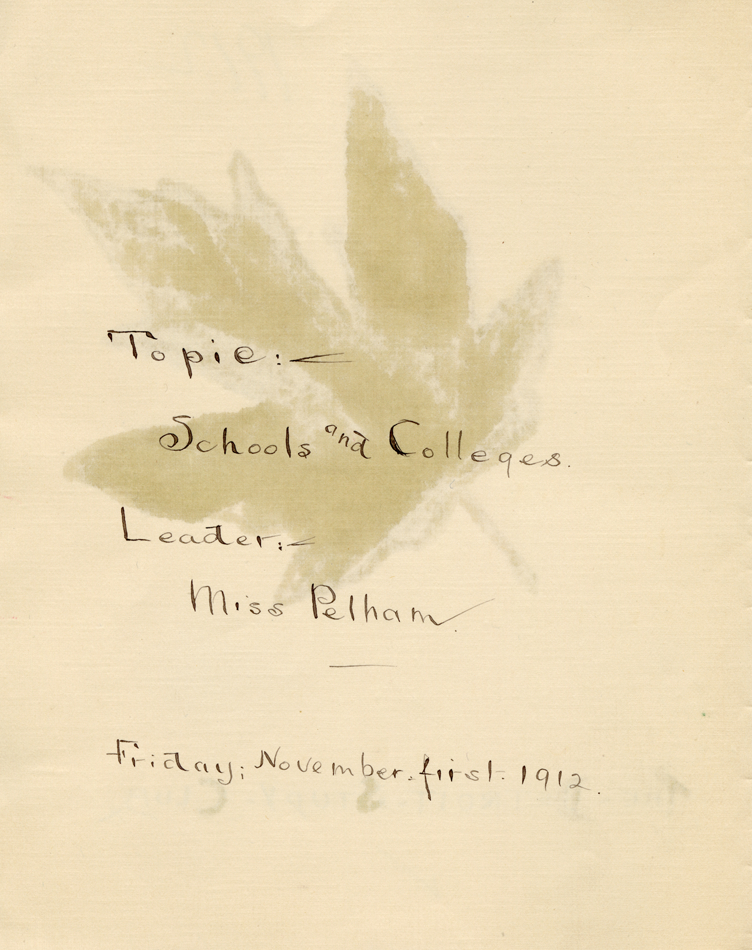 Topic:-
Schools and Colleges.
Leader:-
Miss Pelham.
Friday, November first. 1912.